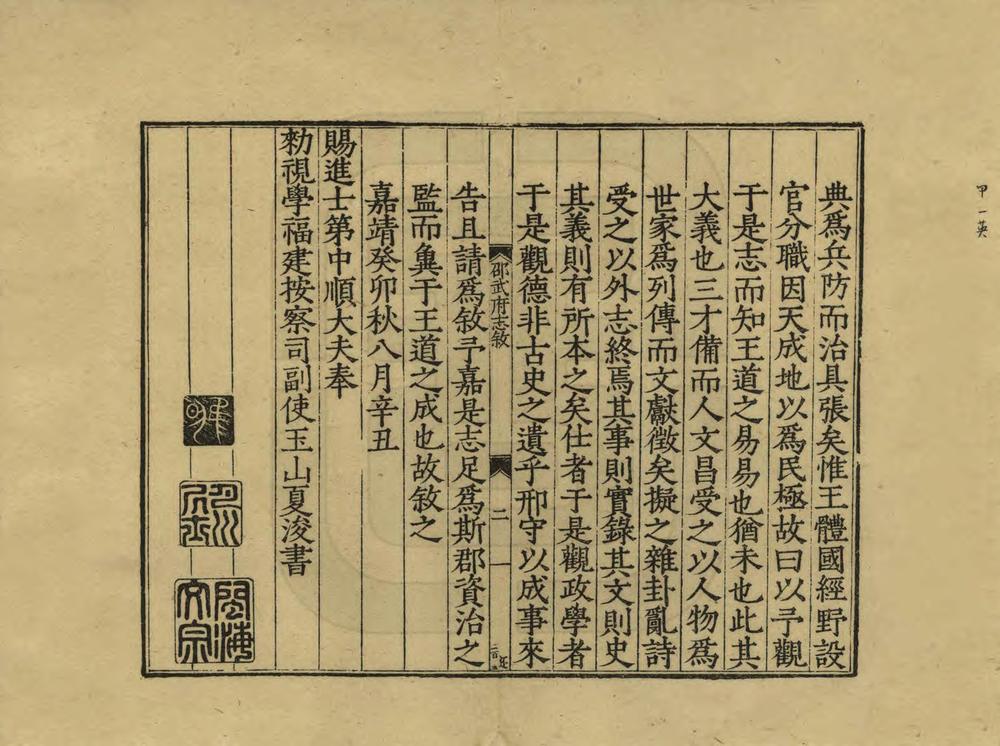 典爲兵防而治具張矣惟王體國經野設
官分職因天成地以爲民極故曰以予觀
于是志而知王道之易易也猶未也此其
大義也三才備而人文昌受之以人物爲
世家爲列傳而文獻徵矣擬之雜卦亂詩
受之以外志終焉其事則實錄其文則史
其義則有所本之矣仕者于是觀政學者
于是觀德非古史之遺乎邢守以成事來
邵武府志敘
二
一
告且請爲敘予嘉是志足爲斯郡資治之
監而兾于王道之成也故敘之
嘉靖癸卯秋八月辛丑
賜進士第中順大夫奉
勑視學福建按察司副使玉山夏浚書
閩海文宗
甲一英